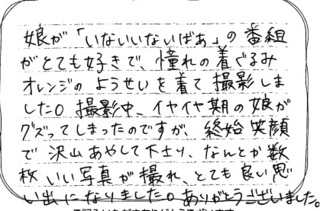 娘が「いないいないばあ」の番組
がとても好きで、憧れの着ぐるみ
オレンジのようせいを着て撮影しま
した。撮影中、イヤイヤ期の娘が
グズってしまったのですが、終始笑顔
で沢山あやして下さり、なんとか数
枚いい写真が撮れ、とても良い思
い出になりました。ありがとうございました。